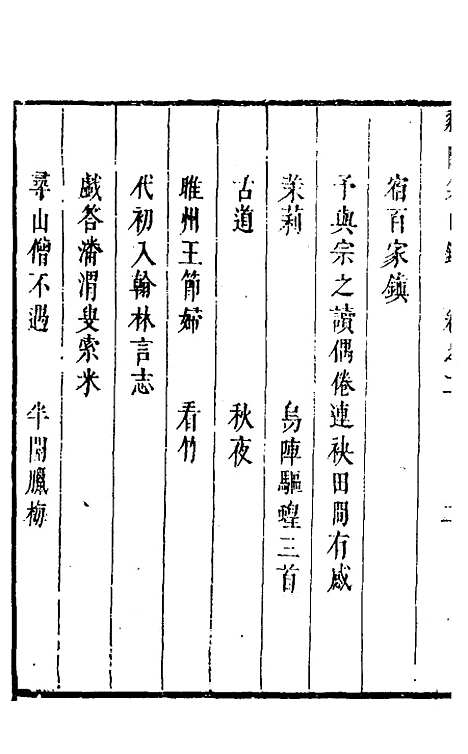 宿百家鎮
予與宗之讀偶倦連袂田間有感
茉莉　烏陣驅蝗三首
古道　秋夜
睢州王節婦　看竹
代初入翰林言志
戲答潘渭叟索米
尋山僧不遇　半開臘梅